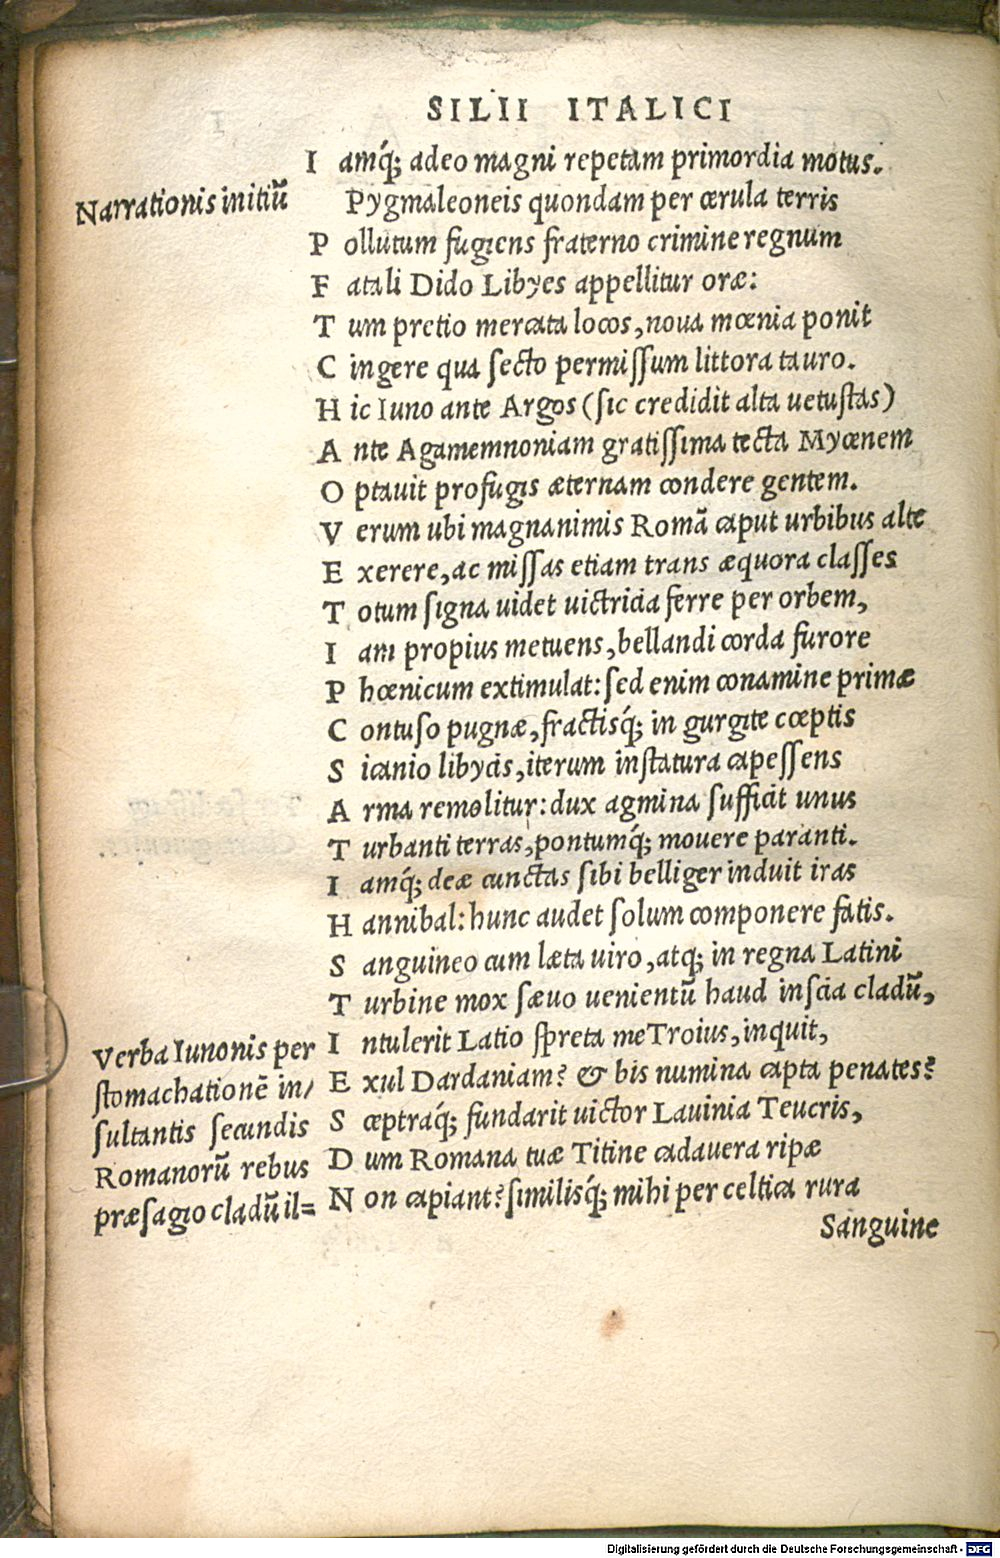 SILII ITALICI
Iamq́; adeo magni repetam primordia motus.
Narrationis initiũ
Pygmaleoneis quondam per cærula terris
Pollutum fugiens fraterno crimine regnum
Fatali Dido Libyes appellitur oræ:
Tum pretio mercata locos, noua mœnia ponit
Cingere qua secto permissum littora tauro.
Hic Iuno ante Argos (sic credidit alta uetustas)
Ante Agamemnoniam gratissima tecta Mycenem
Optauit profugis æternam condere gentem.
Verum ubi magnanimis Romã caput urbibus alte
Exerere, ac missas etiam trans æquora classes
Totum signa uidet uictricia ferre per orbem,
Iam propius metuens, bellandi corda furore
Phœnicum extimulat: sed enim conamine primæ
Contuso pugnæ, fractisq́; in gurgite cœptis
Sicanio libycis, iterum instatura capessens
Arma remolitur: dux agmina sufficit unus
Turbanti terras, pontumq́; mouere paranti.
Iamq́; deæ cunctas sibi belliger induit iras
Hannibal: hunc audet solum componere fatis.
Sanguineo cum læta uiro, atq; in regna Latini
Turbine mox sæuo uenientũ haud inscia cladũ,
Intulerit Latio spreta me Troius, inquit,
Exul Dardaniam? & bis numina capta penates?
Sceptraq́; fundarit uictor Lauinia Teucris,
Dum Romana tuæ Ticine cadauera ripæ
Non capiant? similisq́; mihi per celtica rura
Verba Iunonis per
stomachationẽ in/
sultantis secundis
Romanorũ rebus
præsagio cladũ il=
Sanguine
Digitalisierung gefördert durch die Deutsche Forschungsgemeinschaft - DFG